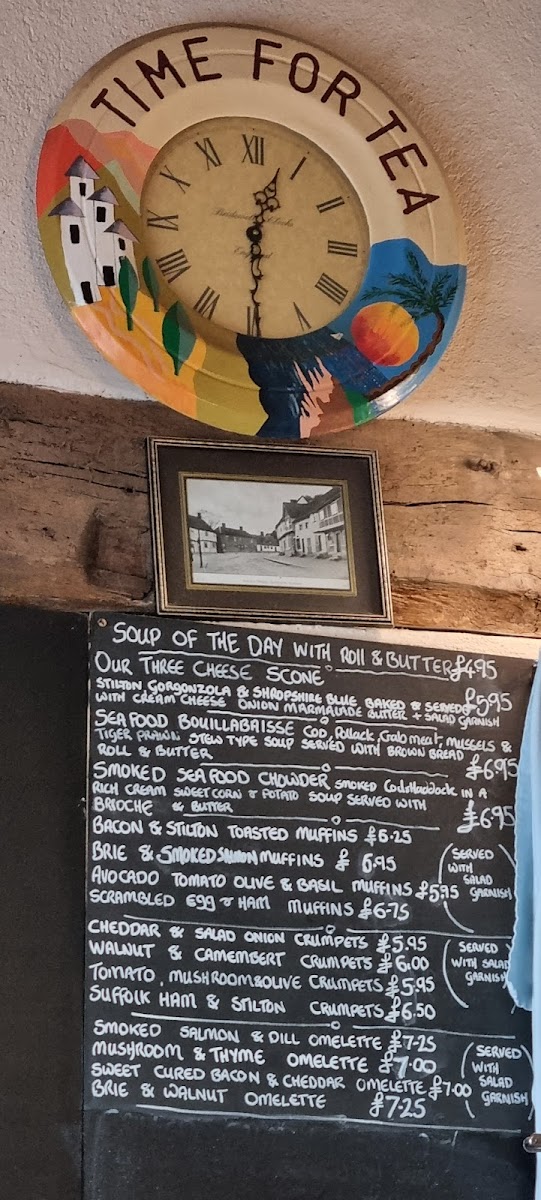 TIME FOR TEA
XII
I
II
III
IIII
V
VI
VII
VIII
IX
X
XI
England
SOUP OF THE DAY WITH ROLL & BUTTER £4.95
OUR THREE CHEESE SCONE
STILTON GORGONZOLA & SHROPSHIRE BLUE BAKED & SERVED £5.95
WITH CREAM CHEESE ONION MARMALADE BUTTER + SALAD GARNISH
SEAFOOD BOUILLABAISSE COD, Pollack, Crab meat, MUSSELS &
TIGER PRAWN STEW TYPE SOUP SERVED WITH BROWN BREAD
ROLL & BUTTER £6.95
SMOKED SEAFOOD CHOWDER SMOKED Cod, Haddock IN A
RICH CREAM SWEETCORN & POTATO SOUP SERVED WITH
BRIOCHE & BUTTER £6.95
BACON & STILTON TOASTED MUFFINS £6.25
BRIE & SMOKED SALMON MUFFINS £6.95
AVOCADO TOMATO OLIVE & BASIL MUFFINS £5.95
SCRAMBLED EGG & HAM MUFFINS £6.75
(SERVED
WITH
SALAD
GARNISH)
CHEDDAR & SALAD ONION CRUMPETS £5.95
WALNUT & CAMEMBERT CRUMPETS £6.00
TOMATO, MUSHROOM & OLIVE CRUMPETS £5.95
SUFFOLK HAM & STILTON CRUMPETS £6.50
(SERVED
WITH SALAD
GARNISH)
SMOKED SALMON & DILL OMELETTE £7.25
MUSHROOM & THYME OMELETTE £7.00
SWEET CURED BACON & CHEDDAR OMELETTE £7.00
BRIE & WALNUT OMELETTE £7.25
(SERVED
WITH
SALAD
GARNISH)